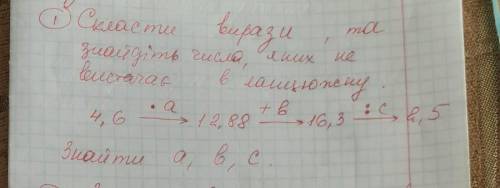 ① Скласти вирази, та
знайдіть числа, яких не
вистачає в ланцюжку.
4,6 —· a→ 12,88 —+ в→ 16,3 —: с→ 2,5
Знайти a, в, с.